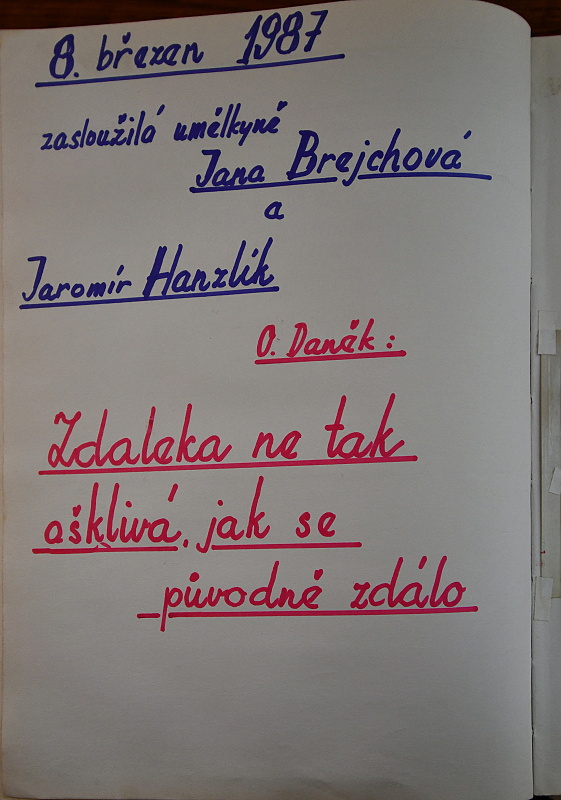 8. březan 1987
zasloužilá umělkyně
Jana Brejchová
a
Jaromír Hanzlík
O. Daněk:
Zdaleka ne tak
ošklivá, jak se
původně zdálo